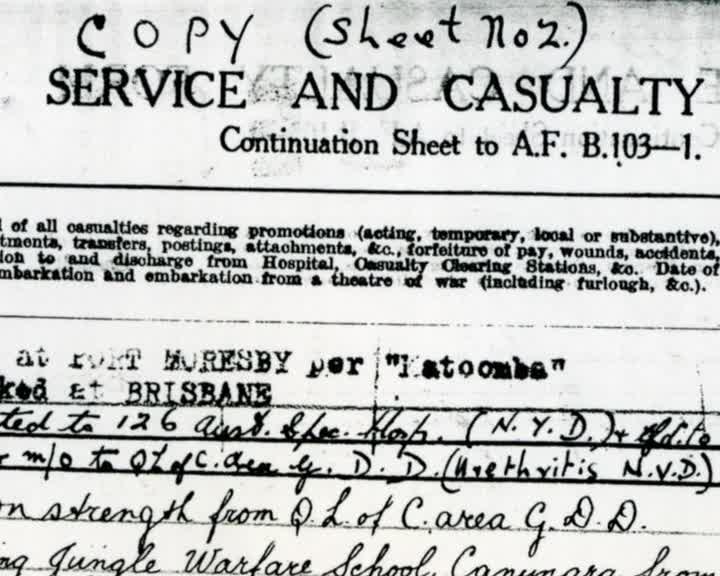 COPY (Sheet No 2.)
SERVICE AND CASUALTY
Continuation Sheet to A.F. B.103—1.
of all casualties regarding promotions (acting, temporary, local or substantive),
tments, transfers, postings, attachments, &c., forfeiture of pay, wounds, accidents,
ion to and discharge from Hospital, Casualty Clearing Stations, &c. Date of
mbarkation and embarkation from a theatre of war (including furlough, &c.).
at PORT MORESBY per "Katoomba"
ked at BRISBANE
ted to 126 Aust. Spec. Hosp. (N.Y.D.) &
m/o to Q L of C. area G. D. D. (Urethritis N.V.D.)
on strength from Q.L. of C. area G.D.D.
ng Jungle Warfare School, Canungra from